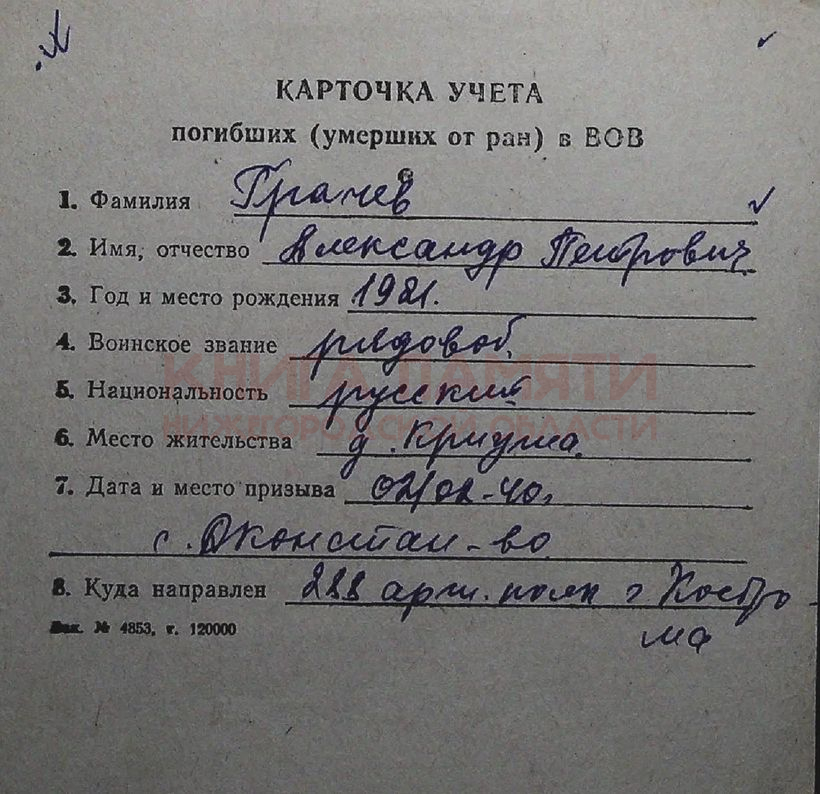 КАРТОЧКА УЧЕТА
погибших (умерших от ран) в ВОВ
1. Фамилия Грачев
2. Имя, отчество Александр Петрович
3. Год и место рождения 1921.
4. Воинское звание рядовой
5. Национальность русский
КНИГА ПАМЯТИ
НИЖЕГОРОДСКОЙ ОБЛАСТИ
6. Место жительства д. Криуша.
7. Дата и место призыва 02/02-40.
с. Дконстан-во
8. Куда направлен 288 арт. полк г Костро-
ма
Зак. № 4853, т. 120000